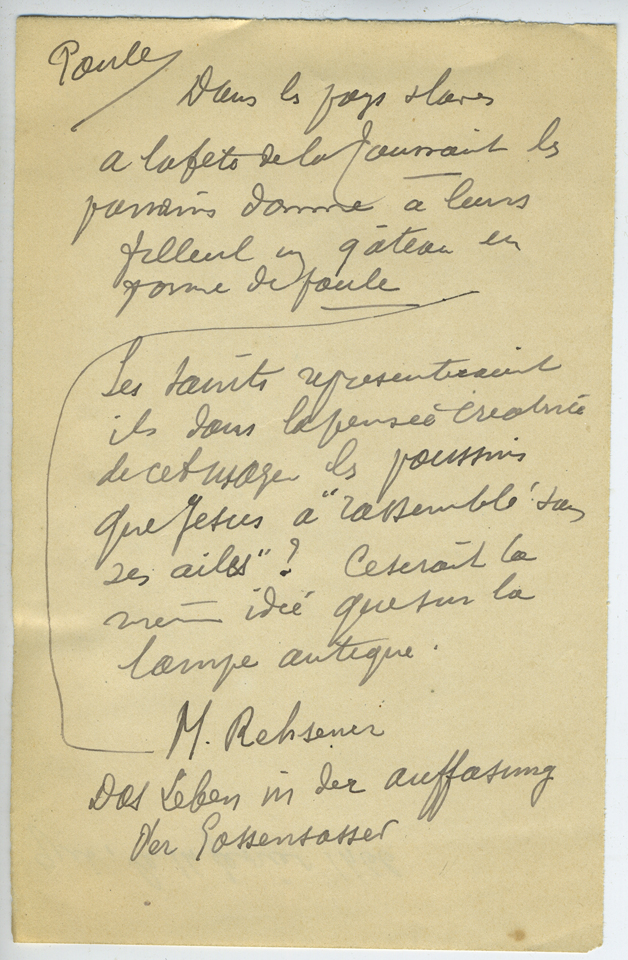 Poule
Dans les pays slaves
a la fete de la Toussaint les
parrains donne à leurs
filleul un gâteau en
forme de poule
Les saints representeraient
ils dans la pensée créatrice
de cet usage les poussins
que Jesus a "rassemblé sous
ses ailes" ? Ce serait la
même idée que sur la
lampe antique.
M. Rehsener
Das Leben in der auffasung
der Gossensasser